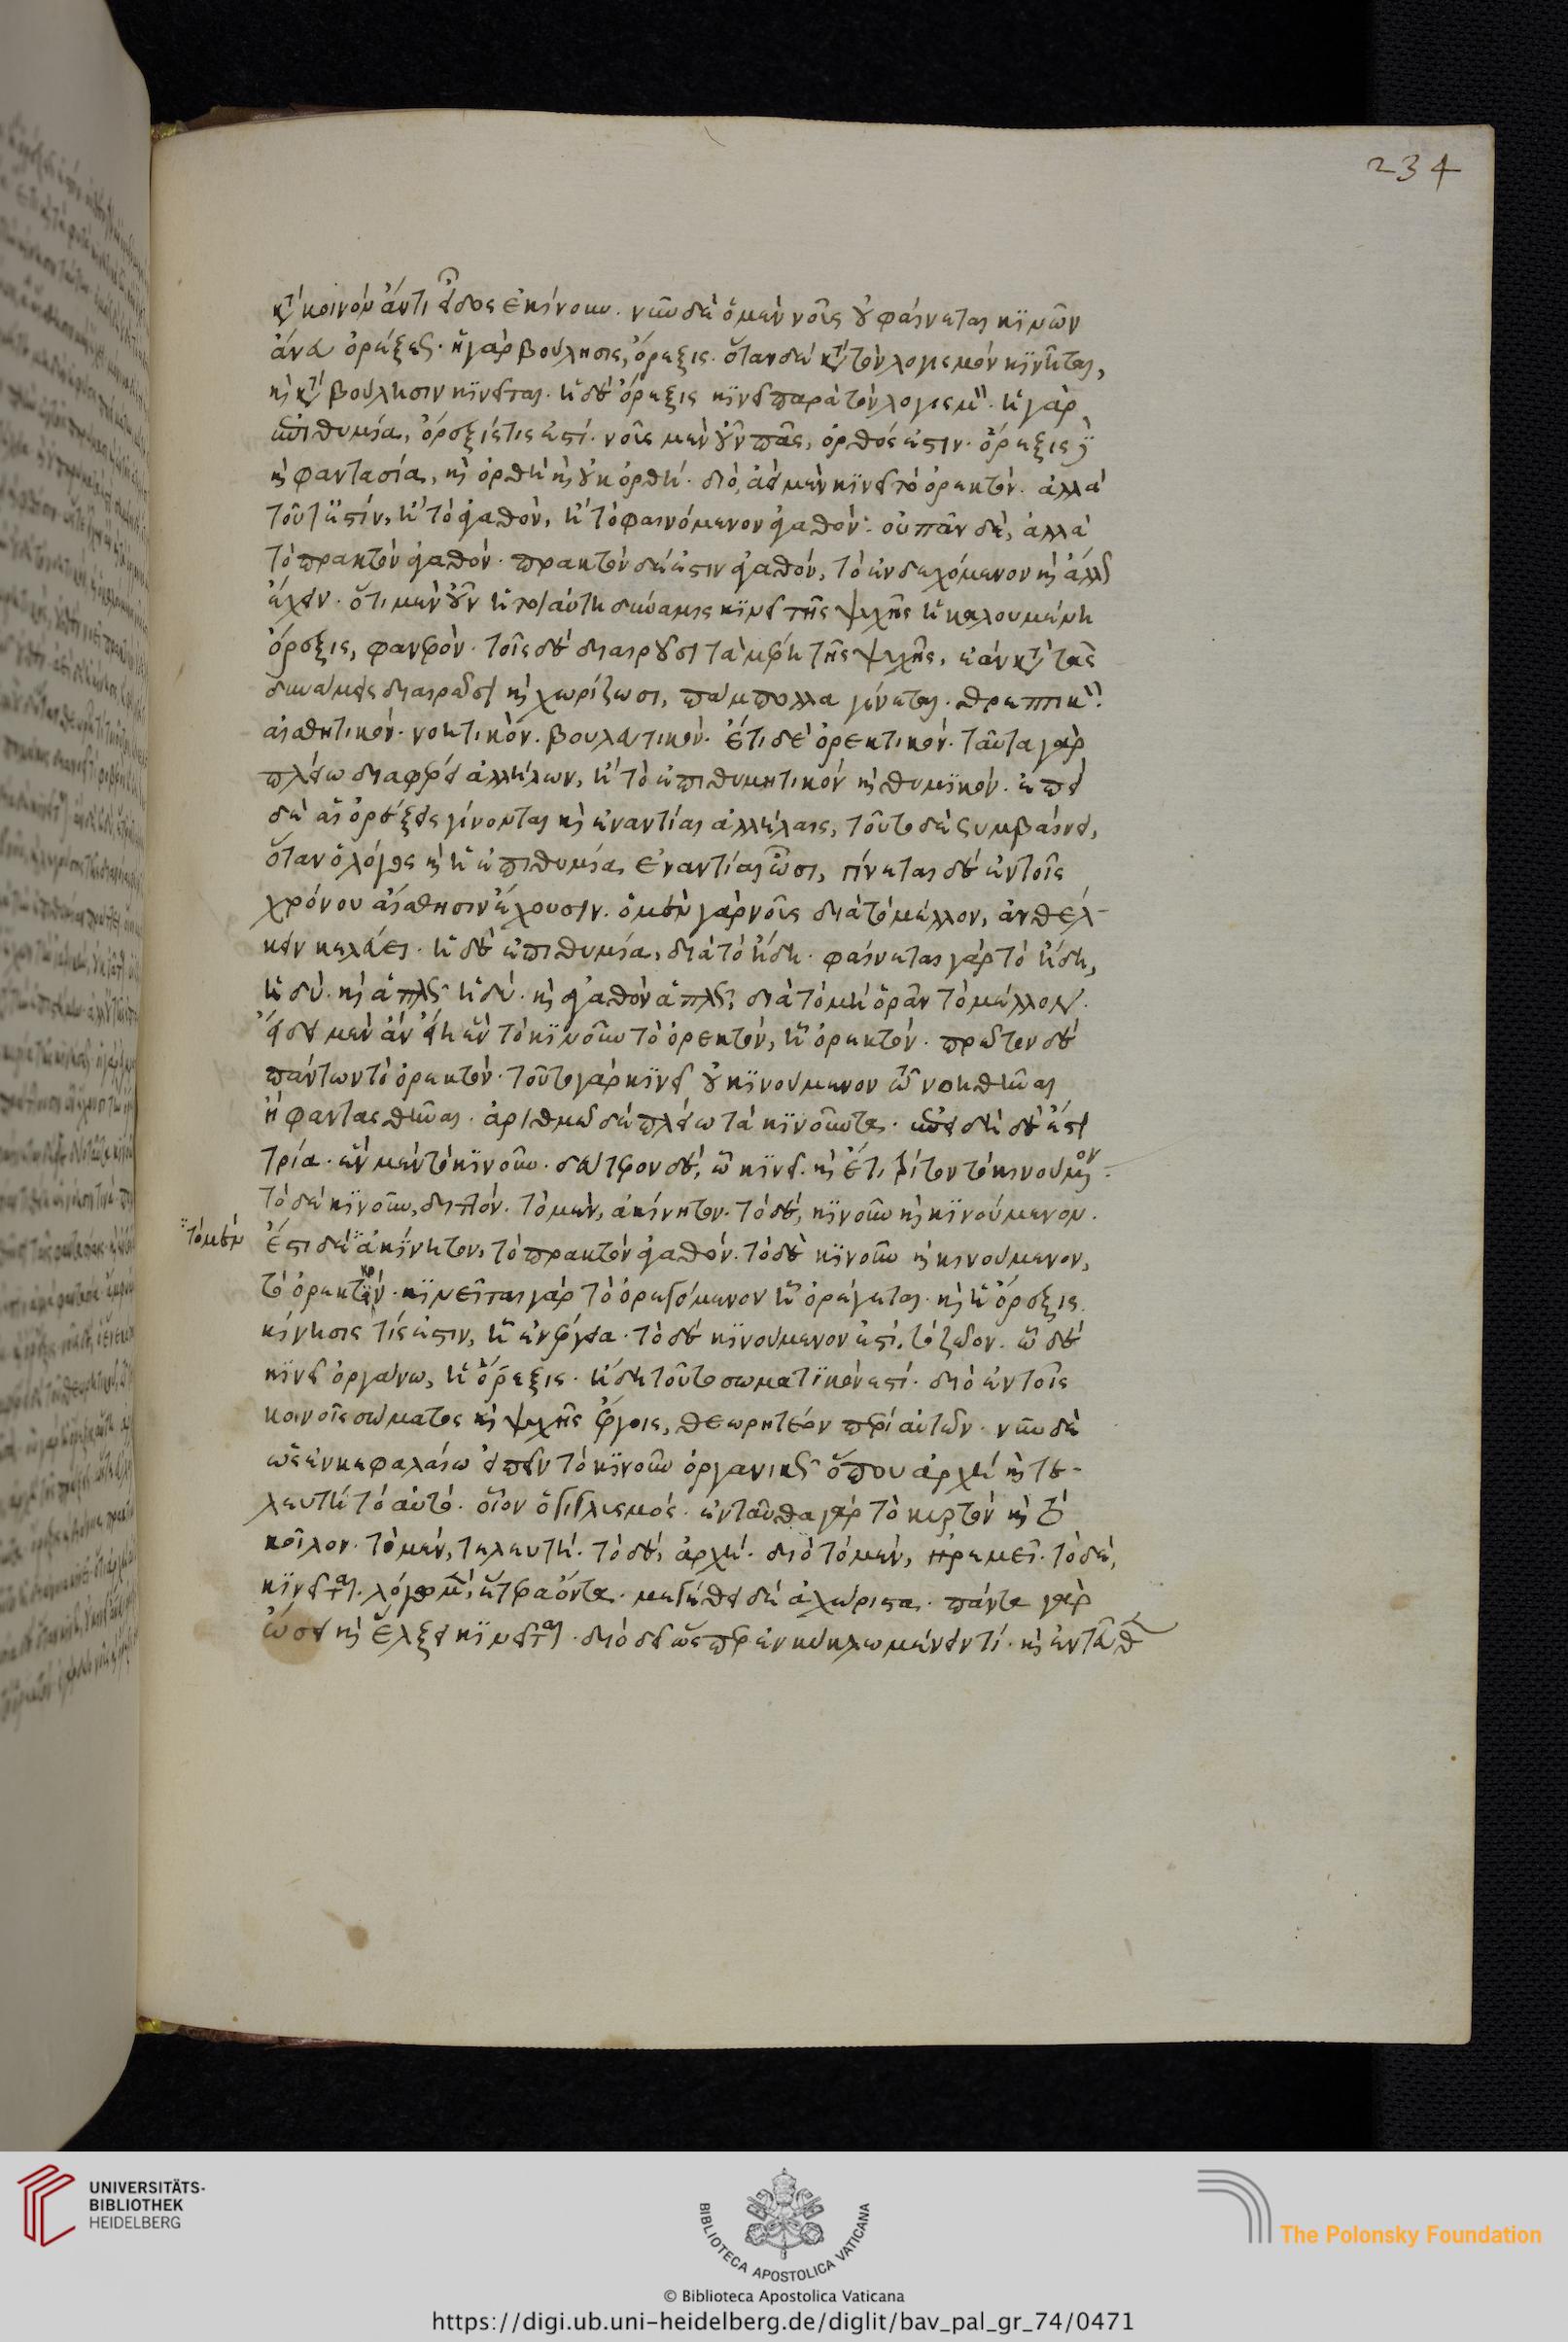 234
κατὰ κοινὸν ἄν τι εἶδος ἐκίνουν. νῦν δὲ ὁ μὲν νοῦς οὐ φαίνεται κινῶν
ἄνευ ὀρέξεως. ἡ γὰρ βούλησις, ὄρεξις. ὅταν δὲ κατὰ τὸν λογισμὸν κινῆται,
καὶ κατὰ βούλησιν κινεῖται. ἡ δὲ ὄρεξις κινεῖ παρὰ τὸν λογισμόν. ἡ γὰρ
ἐπιθυμία, ὄρεξίς τις ἐστί. νοῦς μὲν οὖν πᾶς, ὀρθός ἐστιν. ὄρεξις δὲ
καὶ φαντασία, καὶ ὀρθὴ καὶ οὐκ ὀρθή. διὸ ἀεὶ μὲν κινεῖ τὸ ὀρεκτόν. ἀλλὰ
τοῦτ' ἐστὶν, ἢ τὸ ἀγαθὸν, ἢ τὸ φαινόμενον ἀγαθόν. οὐ πᾶν δὲ, ἀλλὰ
τὸ πρακτὸν ἀγαθόν. πρακτὸν δέ ἐστιν ἀγαθὸν, τὸ ἐνδεχόμενον καὶ ἄλλως
ἔχειν. ὅτι μὲν οὖν ἡ τοιαύτη δύναμις κινεῖ τῆς ψυχῆς ἡ καλουμένη
ὄρεξις, φανερόν. τοῖς δὲ διαιροῦσι τὰ μέρη τῆς ψυχῆς, ἐὰν κατὰ τὰς
δυνάμεις διαιρῶσι καὶ χωρίζωσι, πάμπολλα γίνεται. θρεπτικόν.
αἰσθητικόν. νοητικόν. βουλευτικόν. ἔτι δὲ ὀρεκτικόν. ταῦτα γὰρ
πλείω διαφέρει ἀλλήλων, ἢ τὸ ἐπιθυμητικὸν καὶ θυμικόν. ἐπεὶ
δὲ αἱ ὀρέξεις γίνονται καὶ ἐναντίαι ἀλλήλαις, τοῦτο δὲ συμβαίνει,
ὅταν ὁ λόγος καὶ ἡ ἐπιθυμία ἐναντίαι ὦσι, γίνεται δὲ ἐν τοῖς
χρόνου αἴσθησιν ἔχουσιν. ὁ μὲν γὰρ νοῦς διὰ τὸ μέλλον, ἀνθέλ-
κειν κελεύει. ἡ δὲ ἐπιθυμία, διὰ τὸ ἤδη. φαίνεται γὰρ τὸ ἤδη,
ἡδύ. καὶ ἁπλῶς ἡδύ. καὶ ἀγαθὸν ἁπλῶς, διὰ τὸ μὴ ὁρᾶν τὸ μέλλον.
εἴδει μὲν ἂν εἴη ἓν τὸ κινοῦν τὸ ὀρεκτὸν, ᾗ ὀρεκτόν. πρῶτον δὲ
πάντων τὸ ὀρεκτόν. τοῦτο γὰρ κινεῖ οὐ κινούμενον τῷ νοηθῆναι
ἢ φαντασθῆναι. ἀριθμῷ δὲ πλείω τὰ κινοῦντα. ἐπειδὴ δὲ ἐστὶ
τρία. ἓν μὲν τὸ κινοῦν. δεύτερον δὲ, ᾧ κινεῖ. καὶ ἔτι τρίτον τὸ κινούμενον.
τὸ δὲ κινοῦν, διττόν. τὸ μὲν, ἀκίνητον. τὸ δὲ, κινοῦν καὶ κινούμενον.
τὸ μὲν
ἔστι δὲ ἀκίνητον, τὸ πρακτὸν ἀγαθόν. τὸ δὲ κινοῦν καὶ κινούμενον,
τὸ ὀρεκτικόν. κινεῖται γὰρ τὸ ὀρεγόμενον ᾗ ὀρέγεται. καὶ ἡ ὄρεξις
κίνησις τίς ἐστιν, ἢ ἐνέργεια. τὸ δὲ κινούμενον ἐστὶ, τὸ ζῷον. ᾧ δὲ
κινεῖ ὀργάνῳ, ἡ ὄρεξις. ἤδη τοῦτο σωματικόν ἐστι. διὸ ἐν τοῖς
κοινοῖς σώματος καὶ ψυχῆς ἔργοις, θεωρητέον περὶ αὐτῶν. νῦν δὲ
ὡς ἐν κεφαλαίῳ εἰπεῖν τὸ κινοῦν ὀργανικῶς ὅπου ἀρχὴ καὶ τε-
λευτὴ τὸ αὐτό. οἷον ὁ γιγλισμός. ἐνταῦθα γὰρ τὸ κυρτὸν καὶ τὸ
κοῖλον. τὸ μὲν, τελευτή. τὸ δὲ, ἀρχή. διὸ τὸ μὲν, ἠρεμεῖ. τὸ δὲ,
κινεῖται. λόγῳ μὲν, ἕτερα ὄντα. μεγέθει δὲ ἀχώριστα. πάντα γὰρ
ὤσει καὶ ἕλξει κινεῖται. διὸ δεῖ ὥσπερ ἐν κύκλῳ μένειν τί. καὶ ἐντεῦθεν
UNIVERSITÄTS-
BIBLIOTHEK
HEIDELBERG
BIBLIOTECA APOSTOLICA VATICANA
The Polonsky Foundation
© Biblioteca Apostolica Vaticana
https://digi.ub.uni-heidelberg.de/diglit/bav_pal_gr_74/0471